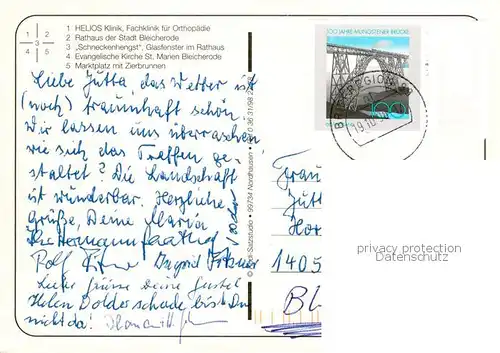 1 HELIOS Klinik, Fachklinik für Orthopädie
2 Rathaus der Stadt Bleicherode
3 „Schneckenhengst", Glasfenster im Rathaus
4 Evangelische Kirche St. Marien Bleicherode
5 Marktplatz mit Zierbrunnen
1 2
3
4 5
100 JAHRE MÜNGSTENER BRÜCKE
100
BRIEFREGION
19.10.
Liebe Jutta, das Wetter ist
(noch) traumhaft schön.
Wir lassen uns überraschen
wie sich das Treffen ge-
staltet? Die Landschaft
ist wunderbar. Herzliche
Grüße, Deine Maria
Ihr Hermann
Rolf Ingrid
Liebe Grüße deine
Helen schade bist Du
nicht da!
Satzstudio • 99734 Nordhausen
Frau
Jutt
Hor
1405
BL
privacy protection
DatenSchutz